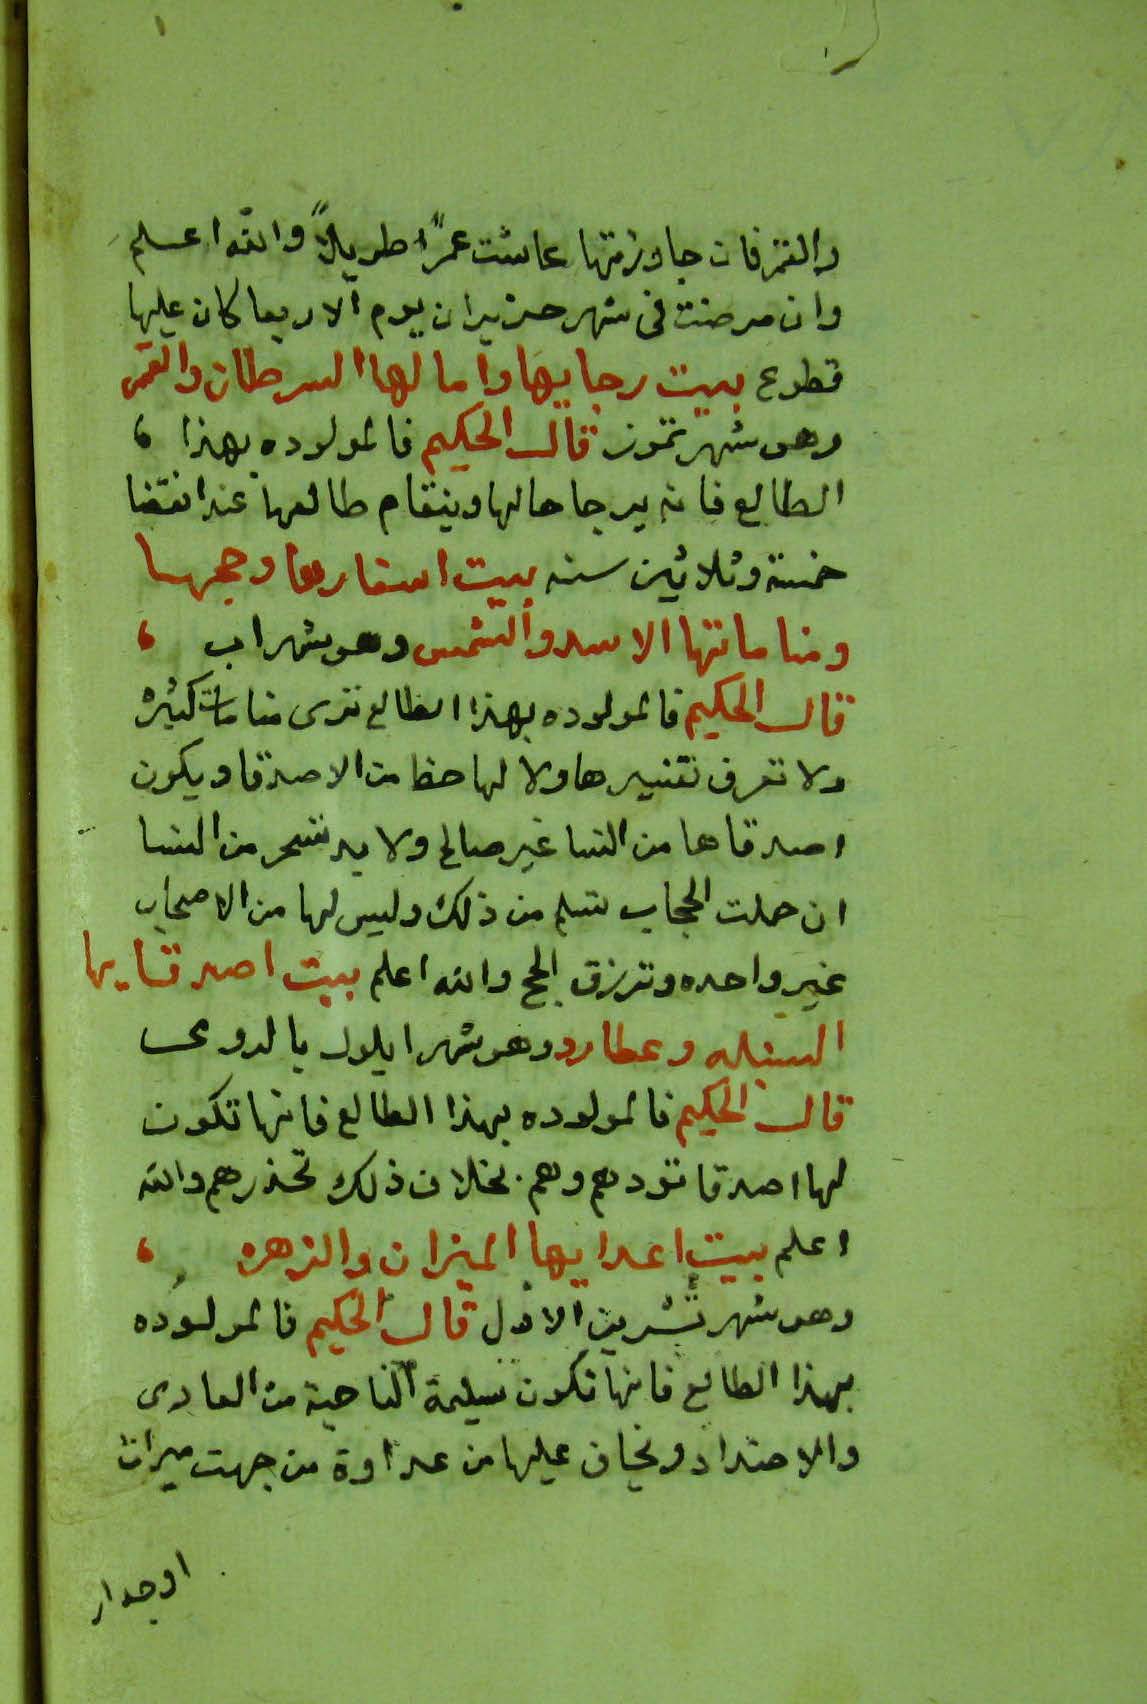 والقمر فان جاوزتها عاشت عمرًا طويلاً والله اعلم
وان مرضت فى شهر حزيران يوم الاربعا كان عليها
قطوع بيت رجايها واما لها السرطان والقمر
وهو شهر تموز قال الحكيم فالمولوده بهذا ،
الطالع فانه يرجا حالها وينقام طالعها عند انقضا
خمسة وثلاثين سنه بيت اسفارها وحجها
ومناماتها الاسد والشمس وهو شهر اب ،
قال الحكيم فالمولوده بهذا الطالع ترى منامات كثيره
ولا تعرف تفسيرها ولا لها حظا من الاصدقا ويكون
اصدقاها من النسا غير صالح ولا بد تسحر من النسا
ان حملت الحجاب تسلم من ذلك وليس لها من الاصحاب
غير واحده وترزق الحج والله اعلم بيت اصدقايها
السنبله وعطارد وهو شهر ايلول
قال الحكيم فالمولوده بهذا الطالع فانها تكون
لها اصدقا تودهم وهم بخلاف ذلك تحذرهم والله
اعلم بيت اعدايها الميزان والزهره ،
وهو شهر تشرين الاول قال الحكيم فالمولوده
بهذا الطالع فانها تكون سليمة الناحية من العادى
والاضداد ونخاف عليها من عداوة من جهت ميراث
اوجدار